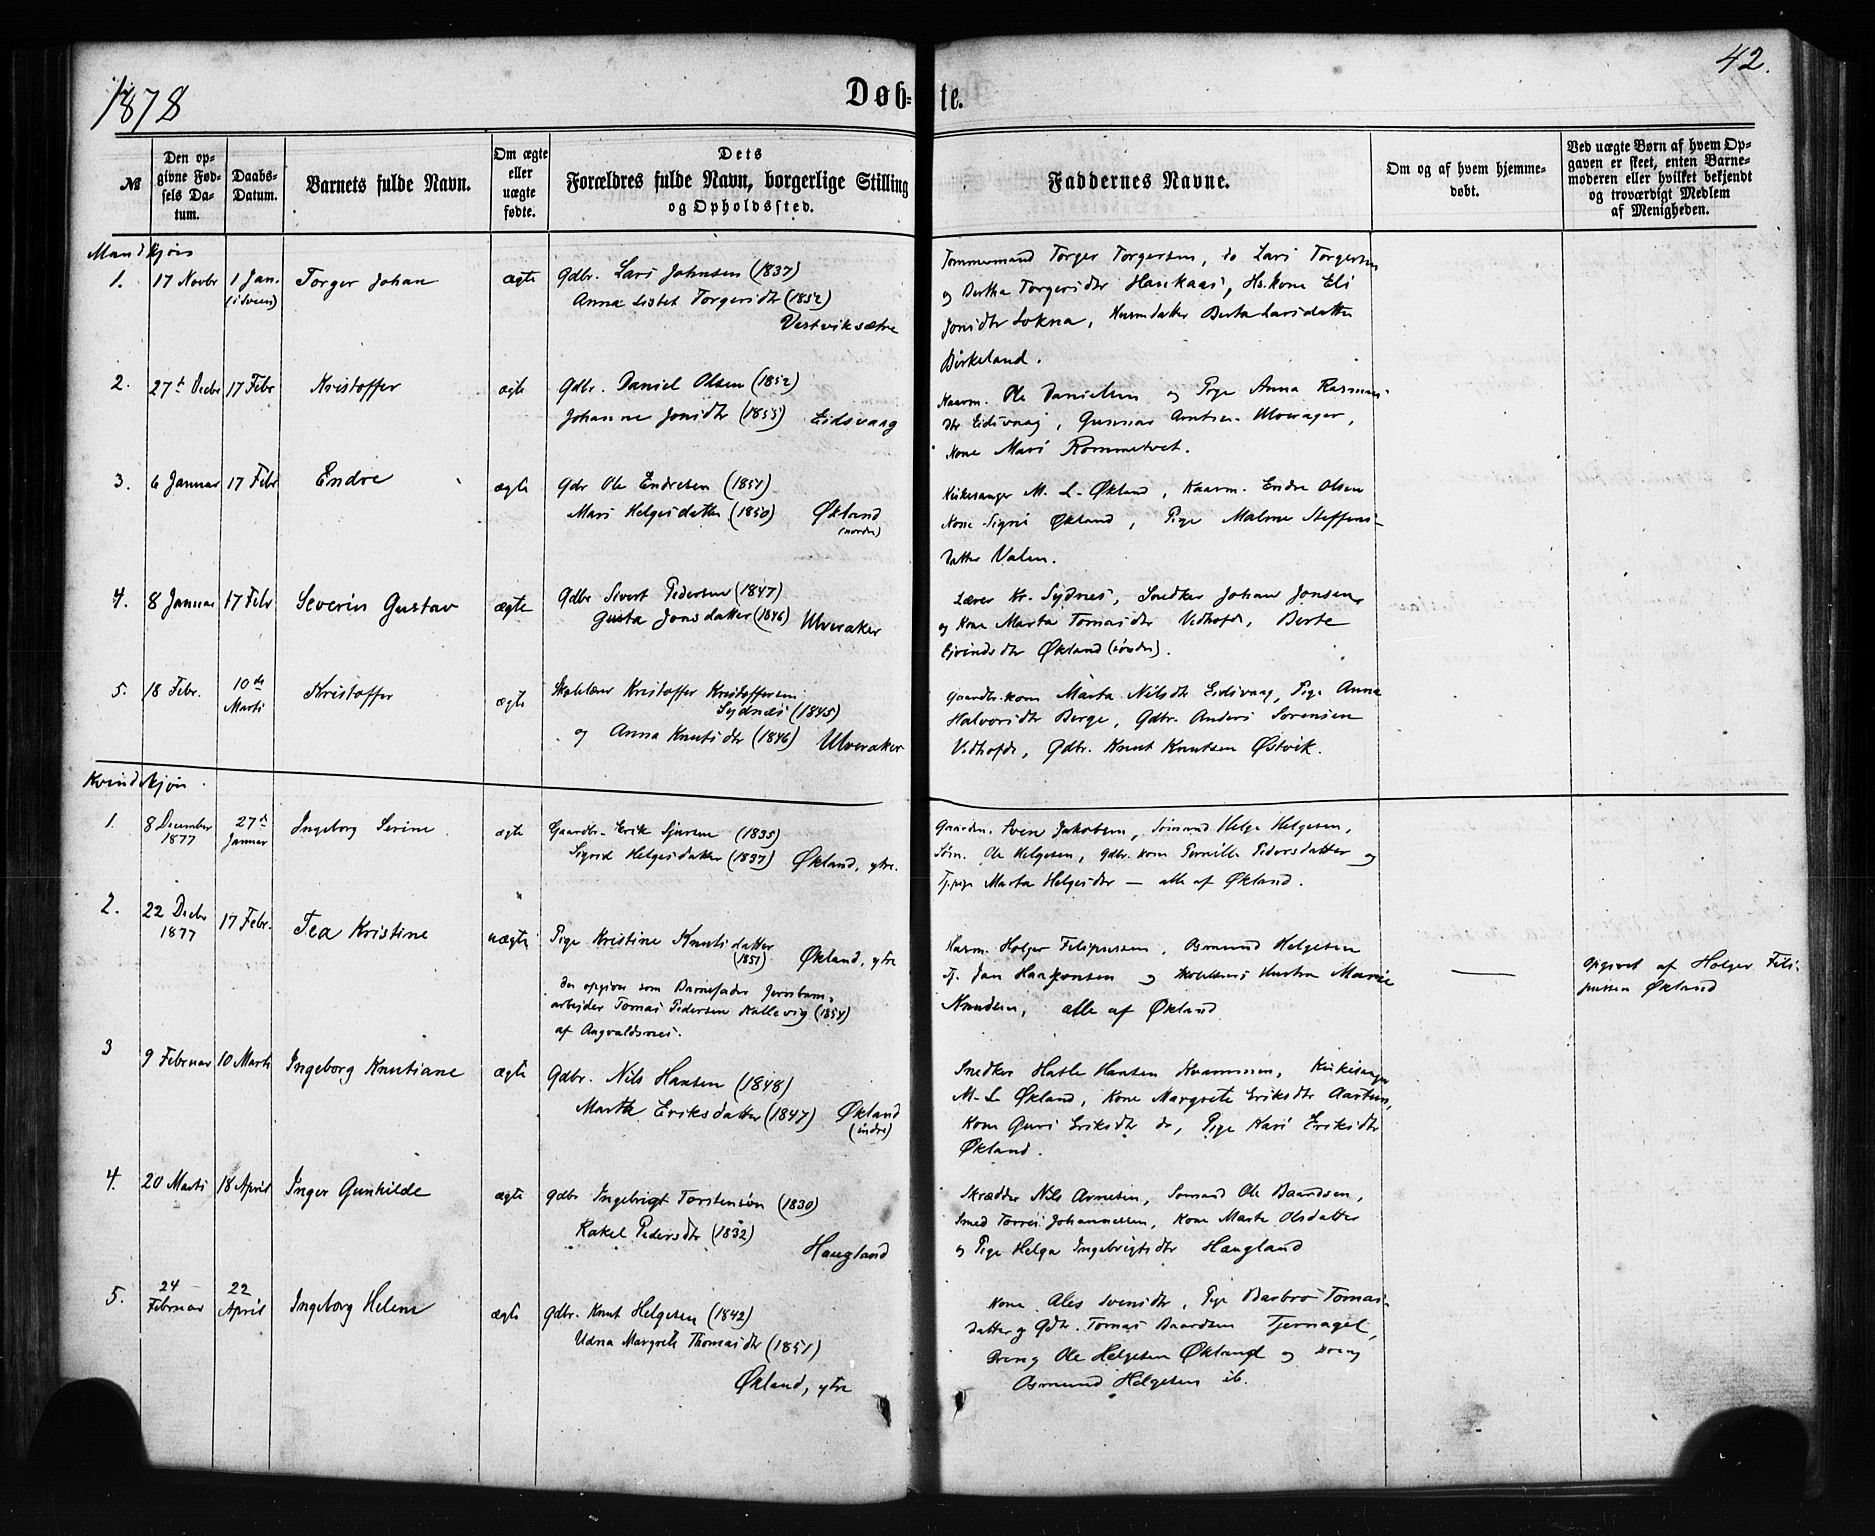 1878
Døb-te.
42.
№
Den op-
givne Fød-
sels Da-
tum.
Daabs-
Datum.
Barnets fulde Navn.
Om ægte
eller
uægte
fødte.
Dets
Forældres fulde Navn, borgerlige Stilling
og Opholdssted.
Faddernes Navne.
Om og af hvem hjemme-
døbt.
Ved uægte Børn af hvem Op-
gaven er skeet, enten Barne-
moderen eller hvilket bekjendt
og troværdigt Medlem
af Menigheden.
Mandkjøn
1. 17 Novbr 1 Jan. Torger Johan ægte Gdbr. Lars Johnsen (1837)
Anna Torgersdtr (1852)
Vestviksætre
Tømmermand Torger Torgersen, do Lars Torgersen
og Bertha Torgersdtr Haukaas, Hs.kone Eli
Jonsdtr Lokna, Husmdatter Berta Larsdatter
Birkeland.
2. 27de Decbr 17 Febr Kristoffer ægte Gdbr. Daniel Olsen (1852)
Johanne Jonsdtr (1855) Eidsvaag
Kaarm. Ole Danielsen og Pige Anna Rasmus-
dtr Eidsvaag, Gunnar Ulverager,
Kone Mari Rommetvet.
3. 6 Januar 17 Febr Endre ægte Gdbr Ole Endresen (1851)
Mari Helgesdatter (1850) Økland
(nordre)
Kirkesanger M. L. Økland, Kaarm. Endre Olsen
Kone Signi Økland, Pige Malene Steffens-
datter Valen.
4. 8 Januar 17 Febr Severin Gustav ægte Gdbr Sivert Pedersen (1847)
Gusta Jonsdatter (1846) Ulveraker
Lærer Kr. Sydnes, Snedker Johan Jonsen
og Kone Marta Tomasdtr Vedhofde, Berte
Eivindsdtr Økland (søndre).
5. 18 Febr. 10de Marts Kristoffer ægte Skolelærer Kristoffer Kristoffersen
Sydnæs (1845)
og Anna Knutsdtr (1846) Ulveraker
Gaardbr.kone Marta Nilsdtr Eidsvaag, Pige Anna
Halvorsdtr Berge, Gdbr. Anders Sørensen
Vedhofde, Gdbr. Knut Knutsen Østvik.
Kvindekjøn.
1. 8 December
1877 27de
Januar Ingeborg Serine ægte Gaardbr. Erik Sjursen (1835)
Sigrid Helgesdatter (1837) Økland, ytre.
Jakobsen, Sømand Helge Helgesen,
Søm. Ole Helgesen, Gdbr. kone Pernille Pedersdatter og
Tj.pige Marta Helgesdtr — alle af Økland.
2. 22 Decbr
1877 17 Febr. Tea Kristine uægte Pige Kristine Knutsdatter
(1851) Økland, ytre
der opgiver som Barnefader Jernbane-
arbejder Tomas Pedersen Kallevig (1854)
af Augvaldsnes.
Husm. Holger Filipussen, Osmund Helgesen
Tj. Jan Haakonsen og Hustru Marie
Knudsen, alle af Økland
—
Opgivet af Holger Fili-
pussen Økland
3 9 Februar 10 Marts Ingeborg Knutiane ægte Gdbr. Nils Hansen (1848)
Marta Eriksdatter (1847) Økland
(indre)
Snedker Hatle Hansen, Kirkesanger
M. L Økland, Kone Margrete Eriksdtr
Kone Guri Eriksdtr do, Pige Kari Eriksdtr
Økland.
4. 20 Marts 18 April Inger Gunhilde ægte Gdbr Ingebrigt Torstensøn (1830)
Rakel Pedersdtr (1832)
Haugland
Skrædder Nils Arnesen, Sømand Ole Baardsen,
Smed Torres Johannessen, Kone Marte Olsdatter
og Pige Helga Ingebrigtsdtr Haugland
5. 24
Februar 22
April Ingeborg Helene ægte Gdbr. Knut Helgesen (1842)
Udna Margrete Thomasdtr (1851)
Økland, ytre
Kone Ales Svensdtr, Pige Barbro Tomas-
datter og Gdbr. Tomas Baardsen Tjernagel,
Dreng Ole Helgesen Økland og Dreng
Osmund Helgesen ib.